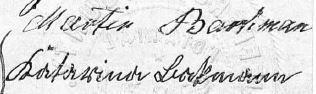 Martin Bartiman
Katarina Backmann